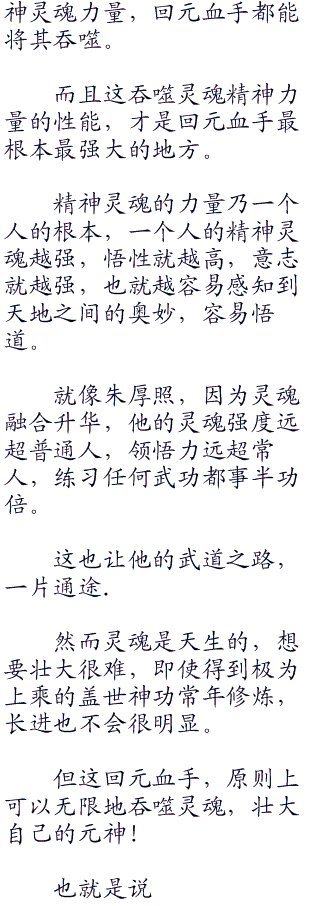 神灵魂力量，回元血手都能
将其吞噬。
而且这吞噬灵魂精神力
量的性能，才是回元血手最
根本最强大的地方。
精神灵魂的力量乃一个
人的根本，一个人的精神灵
魂越强，悟性就越高，意志
就越强，也就越容易感知到
天地之间的奥妙，容易悟
道。
就像朱厚照，因为灵魂
融合升华，他的灵魂强度远
超普通人，领悟力远超常
人，练习任何武功都事半功
倍。
这也让他的武道之路，
一片通途.
然而灵魂是天生的，想
要壮大很难，即使得到极为
上乘的盖世神功常年修炼，
长进也不会很明显。
但这回元血手，原则上
可以无限地吞噬灵魂，壮大
自己的元神！
也就是说